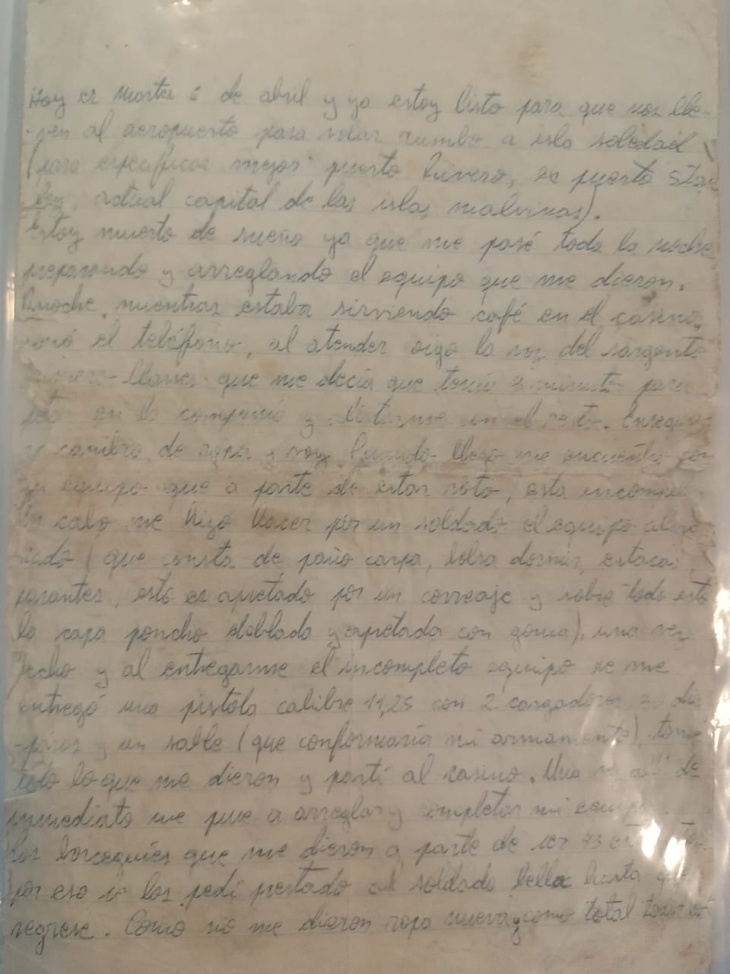 Hoy es martes 6 de abril y ya estoy listo para que nos lle-
ven al aeropuerto para volar rumbo a isla soledad
(para especificar mejor puerto Rivero, ex puerto Stan
ley, actual capital de las islas malvinas).
Estoy muerto de sueño ya que me pasé toda la noche
preparando y arreglando el equipo que me dieron.
Anoche, mientras estaba sirviendo café en el casino,
sonó el teléfono, al atender oigo la voz del sargento
primero que me decía que tenía minutos para
en la compañia y con el resto.
cambio de ropa y voy. Cuando llego me encuentro con
un equipo que a parte de estar roto, esta
Un cabo me hizo hacer por un soldado el equipo
(que consta de paño carpa, bolsa dormir, estacas,
parantes, esto es apretado por un correaje y sobre todo esto
la capa poncho doblada y apretada con goma). una vez
hecho y al entregarme el incompleto equipo se me
entregó una pistola calibre 11,25 con 2 cargadores,
y un sable (que conformaría mi armamento). tomé
todo lo que me dieron y partí al casino. Una vez allí de
inmediato me puse a arreglar y completar mi equipo.
Los borceguíes que me dieron a parte de ser
por eso se los pedí prestado al soldado bella hasta que
regrese. Como no me dieron ropa nueva y como total